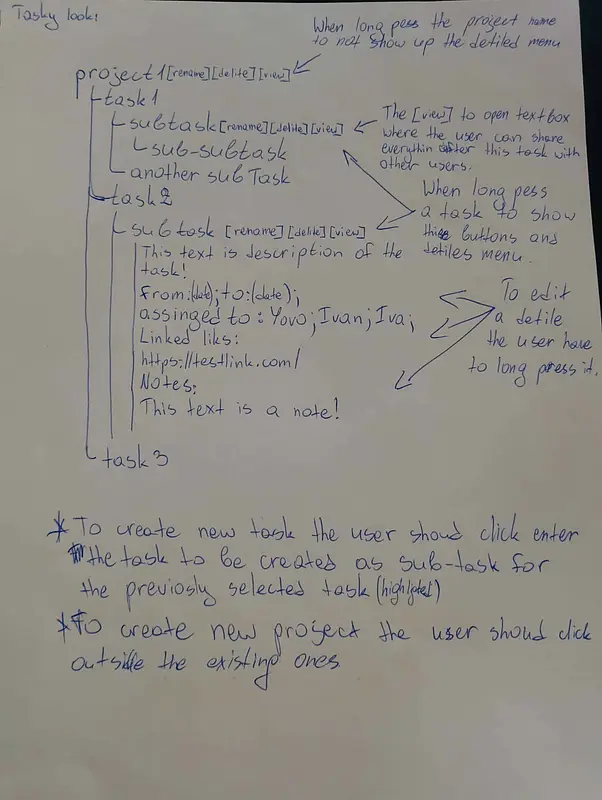 Tasky look:
When long pess the project name
to not show up the detiled menu
project1[rename][delite][view]
task1
subtask[rename][delite][view]
sub-subtask
another sub Task
The [view] to open textbox
where the user can share
everythin after this task with
other users.
task2
When long pess
a task to show
this buttons and
detiles menu.
subtask [rename][delite][view]
This text is description of the
task!
from:(date); to:(date);
assinged to: Yovo; Ivan; Iva;
Linked liks:
https://testlink.com/
Notes:
This text is a note!
To edit
a detile
the user have
to long press it.
task3
* To create new task the user shoud click enter
the task to be created as sub-task for
the previosly selected task (highligted)
* To create new project the user shoud click
outside the existing ones